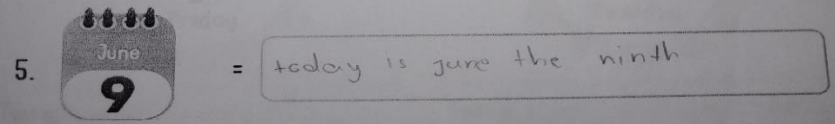 June
5. 9 = today is june the ninth